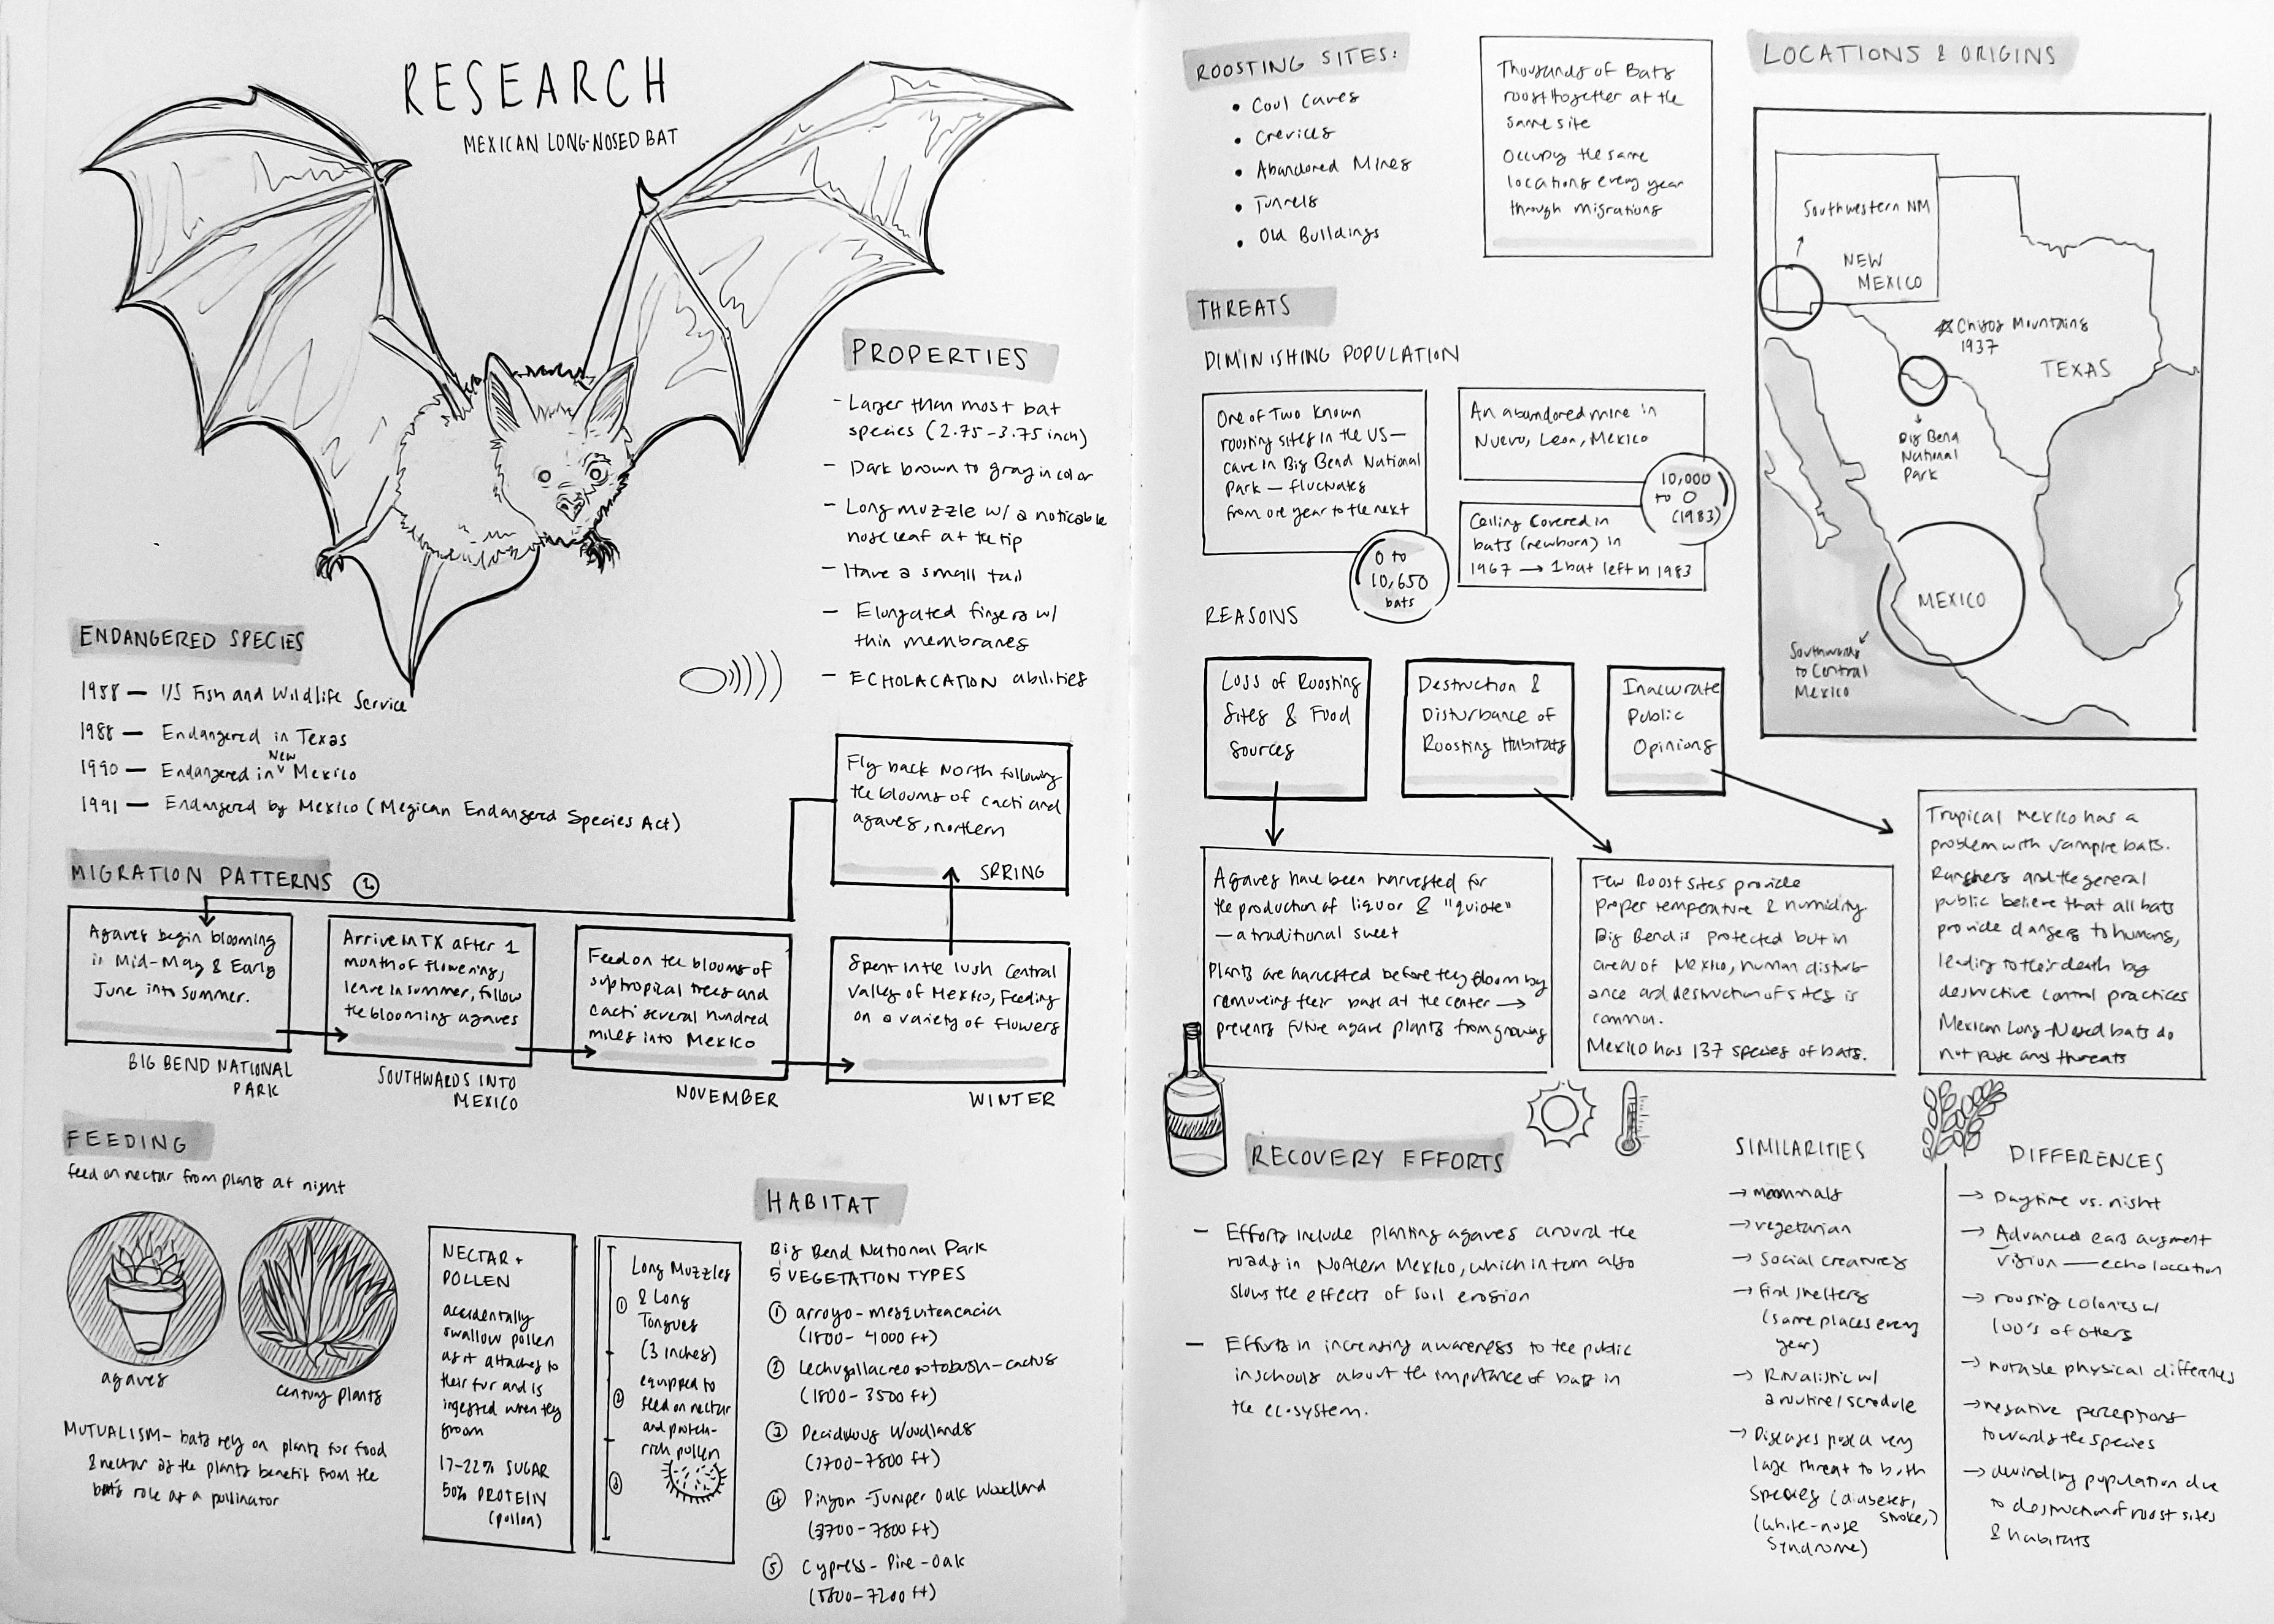 RESEARCH
MEXICAN LONG-NOSED BAT
PROPERTIES
- Larger than most bat
species (2.75-3.75 inch)
- Dark brown to gray in color
- Long muzzle w/ a noticable
nose leaf at the tip
- Have a small tail
- Elongated fingers w/
thin membranes
- ECHOLACATION abilities
ENDANGERED SPECIES
1988 — US Fish and Wildlife Service
1988 — Endangered in Texas
1990 — Endangered in New Mexico
1991 — Endangered by Mexico (Mexican Endangered Species Act)
MIGRATION PATTERNS
Agaves begin blooming
in Mid-May & Early
June into summer.
BIG BEND NATIONAL
PARK
Arrive in TX after 1
month of flowering,
leave in summer, follow
the blooming agaves
SOUTHWARDS INTO
MEXICO
Feed on the blooms of
subtropical trees and
cacti several hundred
miles into Mexico
NOVEMBER
Spent in the lush Central
Valley of Mexico, feeding
on a variety of flowers
WINTER
Fly back North following
the blooms of cacti and
agaves, northern
SPRING
FEEDING
feed on nectar from plants at night
agaves
century plants
MUTUALISM- bats rely on plants for food
& nectar as the plants benefit from the
bats role as a pollinator
NECTAR +
POLLEN
accidentally
swallow pollen
as it attaches to
their fur and is
ingested when they
groom
17-22% SUGAR
50% PROTEIN
(pollen)
Long Muzzles
① & Long
Tongues
(3 inches)
equipped to
② feed on nectar
and protein-
rich pollen
③
HABITAT
Big Bend National Park
5 VEGETATION TYPES
① arroyo-mesquiteacacia
(1800-4000 ft)
② Lechugillacreosotobush-cactus
(1800-3500 ft)
③ Deciduous Woodlands
(3700-7800 ft)
④ Pinyon-Juniper Oak Woodland
(3700-7800 ft)
⑤ Cypress-Pine-Oak
(5800-7200 ft)
ROOSTING SITES:
• Cool Caves
• Crevices
• Abandoned Mines
• Tunnels
• Old Buildings
Thousands of Bats
roost together at the
same site
Occupy the same
locations every year
through migrations
THREATS
DIMINISHING POPULATION
One of Two known
roosting sites in the US—
cave in Big Bend National
Park — fluctuates
from one year to the next
0 to
10,650
bats
An abandoned mine in
Nuevo, Leon, Mexico
10,000
to 0
(1983)
Ceiling covered in
bats (newborn) in
1967 → 1 bat left in 1983
REASONS
Loss of Roosting
Sites & Food
Sources
Destruction &
Disturbance of
Roosting Habitats
Inaccurate
Public
Opinions
Agaves have been harvested for
the production of liquor & "quiote"
— a traditional sweet
Plants are harvested before they bloom by
removing their base at the center →
prevents future agave plants from growing
Few Roost sites provide
proper temperature & humidity
Big Bend is protected but in
areas of Mexico, human disturb
ance and destruction of sites is
common.
Mexico has 137 species of bats.
Tropical Mexico has a
problem with vampire bats.
Ranchers and the general
public believe that all bats
provide dangers to humans,
leading to their death by
destructive control practices
Mexican Long-Nosed bats do
not pose any threats
LOCATIONS & ORIGINS
Southwestern NM
NEW
MEXICO
Chisos Mountains
1937
TEXAS
Big Bend
National
Park
MEXICO
Southwards
to Central
Mexico
RECOVERY EFFORTS
- Efforts include planting agaves around the
roads in Northern Mexico, which in turn also
slows the effects of soil erosion
- Efforts in increasing awareness to the public
in schools about the importance of bats in
the ecosystem.
SIMILARITIES
→ mammals
→ vegetarian
→ Social creatures
→ Find shelters
(same places every
year)
→ Ritualistic w/
a routine/scedule
→ Diseases pose a very
large threat to both
species (diabetes,
stroke,)
(white-nose
syndrome)
DIFFERENCES
→ Daytime vs. night
→ Advanced ears augment
vision — echo location
→ roosting colonies w/
100's of others
→ notable physical differences
→ negative perceptions
towards the species
→ dwindling population due
to destruction of roost sites
& habitats